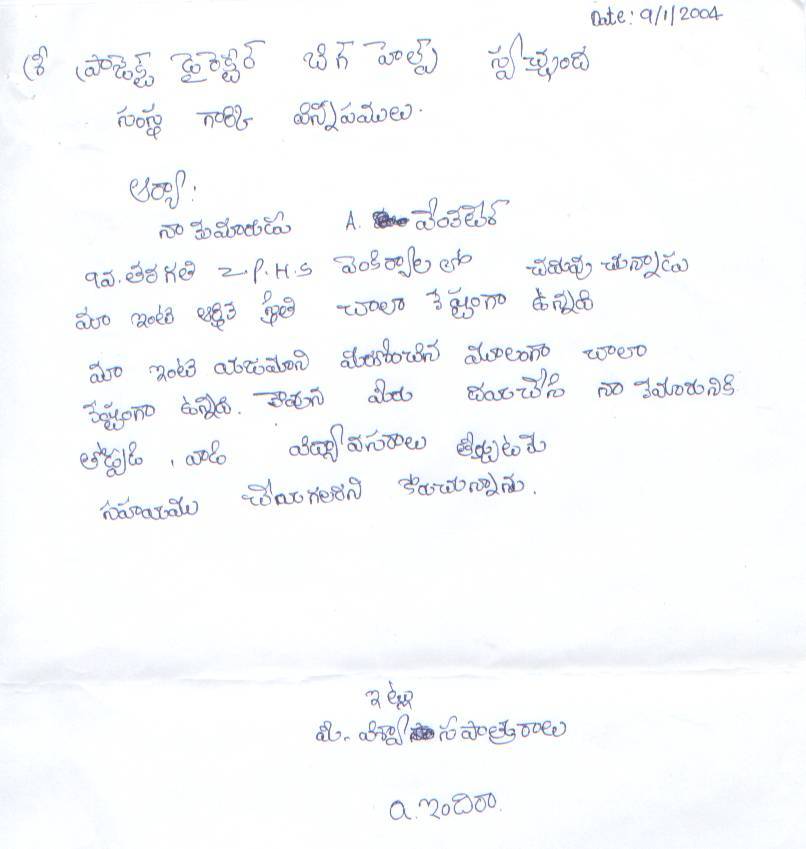 Date: 9/1/2004
శ్రీ ప్రాజెక్ట్ డైరెక్టర్ బిగ్ హెల్ప్ స్వచ్ఛంద
సంస్థ గారికి విన్నపములు.
ఆర్యా:
నా కుమారుడు A. వెంకటేశ్
9వ. తరగతి Z.P.H.S వెంకిర్యాల లో చదువు చున్నాడు
మా ఇంటి ఆర్థిక స్థితి చాలా కష్టంగా ఉన్నది
మా ఇంటి యజమాని మరణించిన మూలంగా చాలా
కష్టంగా ఉన్నది. కావున మీరు దయచేసి నా కుమారునికి
తోడ్పడి, వాడి విద్యావసరాలు తీర్చుటకు
సహాయము చేయగలరని కోరుచున్నాను.
ఇట్లు
మీ. విశ్వాసపాత్రురాలు
A. ఇందిరా.